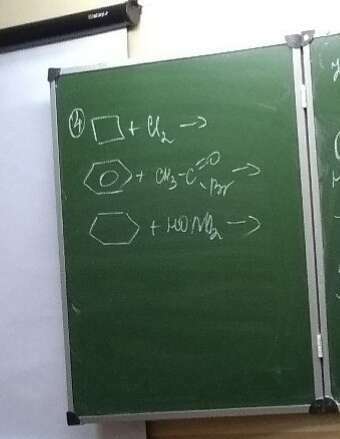 ④ □ + Cl₂ →
⌬ + CH₃-C=O -Br →
⬡ + HONO₂ →